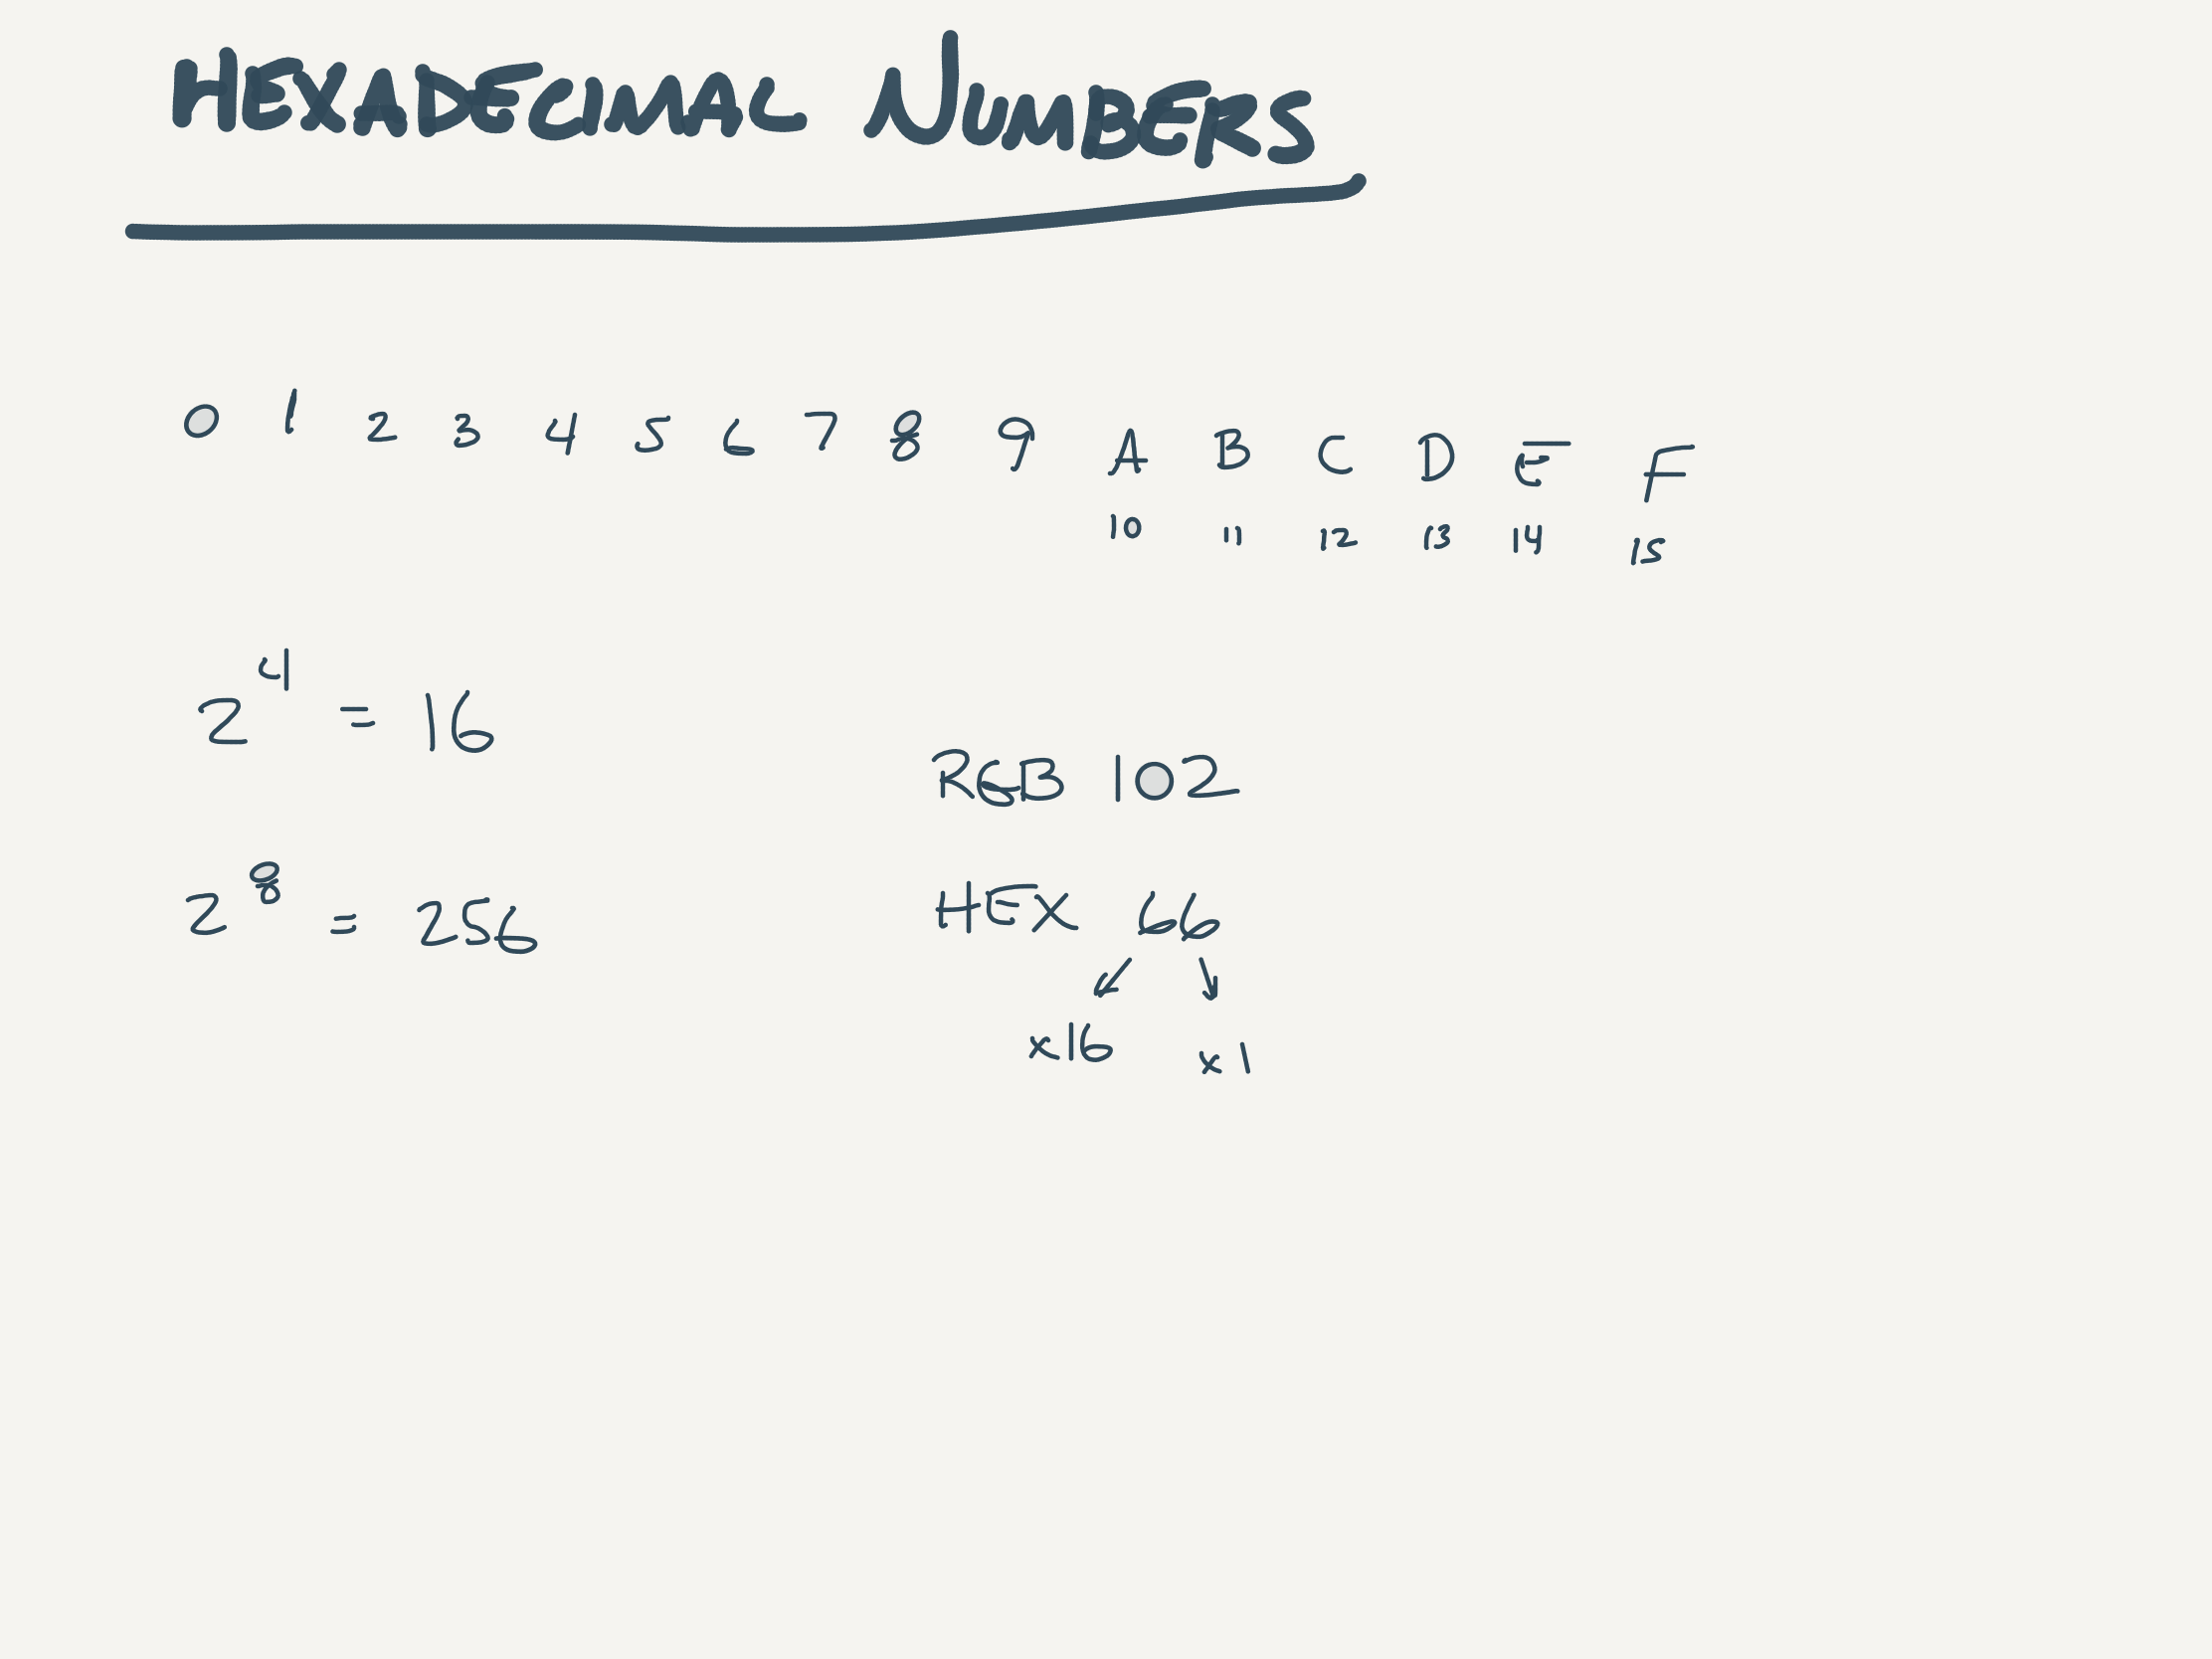 HEXADECIMAL NUMBERS
0 1 2 3 4 5 6 7 8 9 A B C D E F
10 11 12 13 14 15
2^4 = 16
RGB 102
2^8 = 256
HEX 66
x16 x1